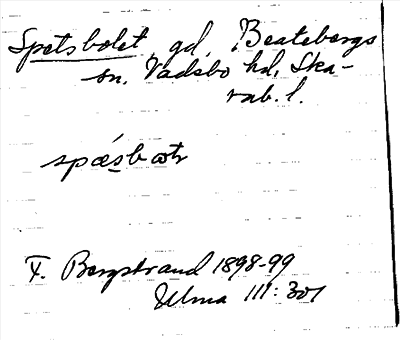 Spetsbolet, gd, Beatebergs
sn. Vadsbo hd, Ska-
rab. l.
spǽsbωtr
T. Bergstrand 1898-99
Ulma 111: 301